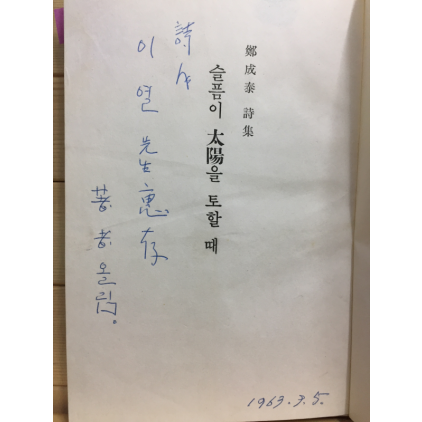 鄭成泰 詩集
슬픔이 太陽을 토할 때
詩
이열 先生 惠存
著者 올림.
1963.3.5.